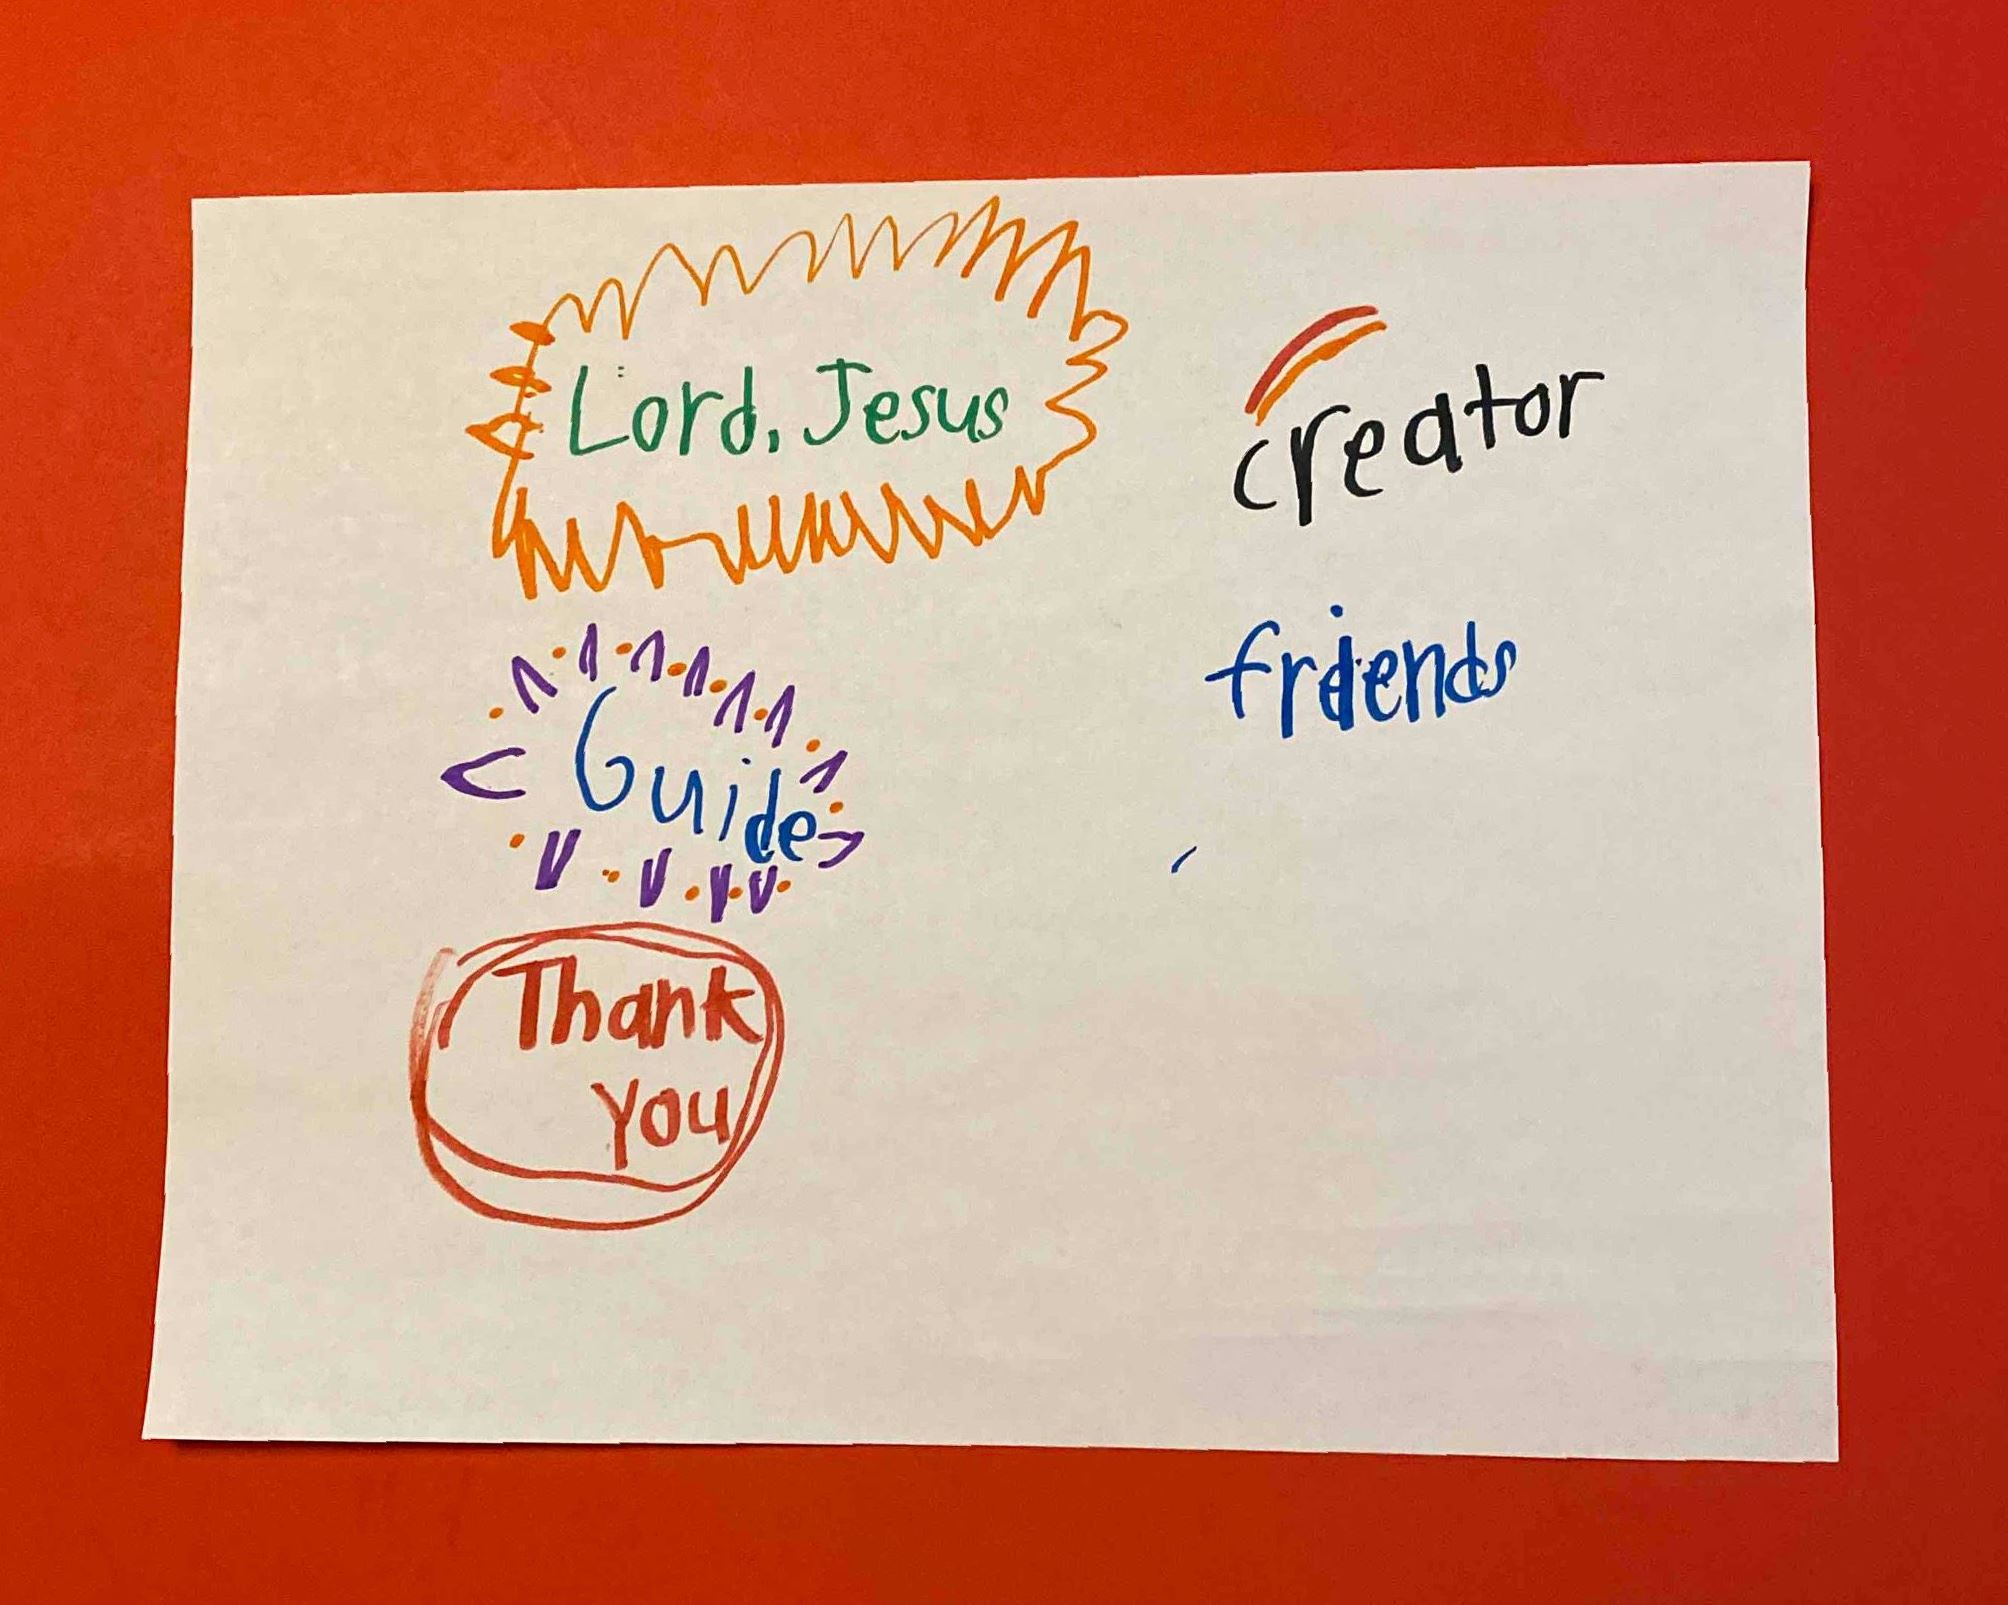 Lord, Jesus
creator
friends
Guide
Thank
you